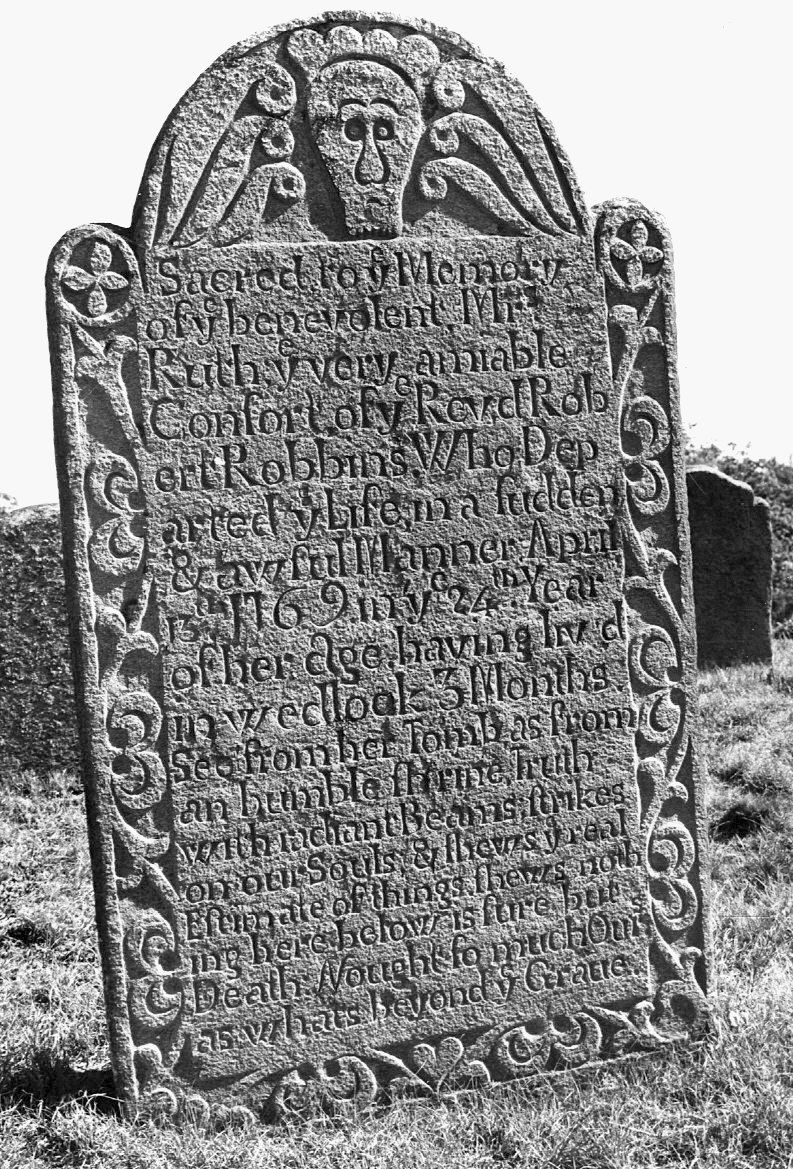 Sacred to yͤ Memory,
of yͤ benevolent, Mrˢ
Ruth, yͤ very amiable
Confort, of yͤ Rev,d Rob
ert Robbins, Who Dep
arted yͤ Life, in a fudden
& awful Manner April
13.ᵗʰ 1769. in yͤ 24.ᵗʰ Year
of her age, having liv'd
in wedlock 3 Months.
See from her Tomb as from
an humble fhrine, Truth
with radiant Beams, ftrikes
on our Souls, & fhews yͤ real
Eftimate of things, fhews noth
ing here below is fure but
Death: Nought fo much Ourˢ
as whats beyond yͤ Graue..